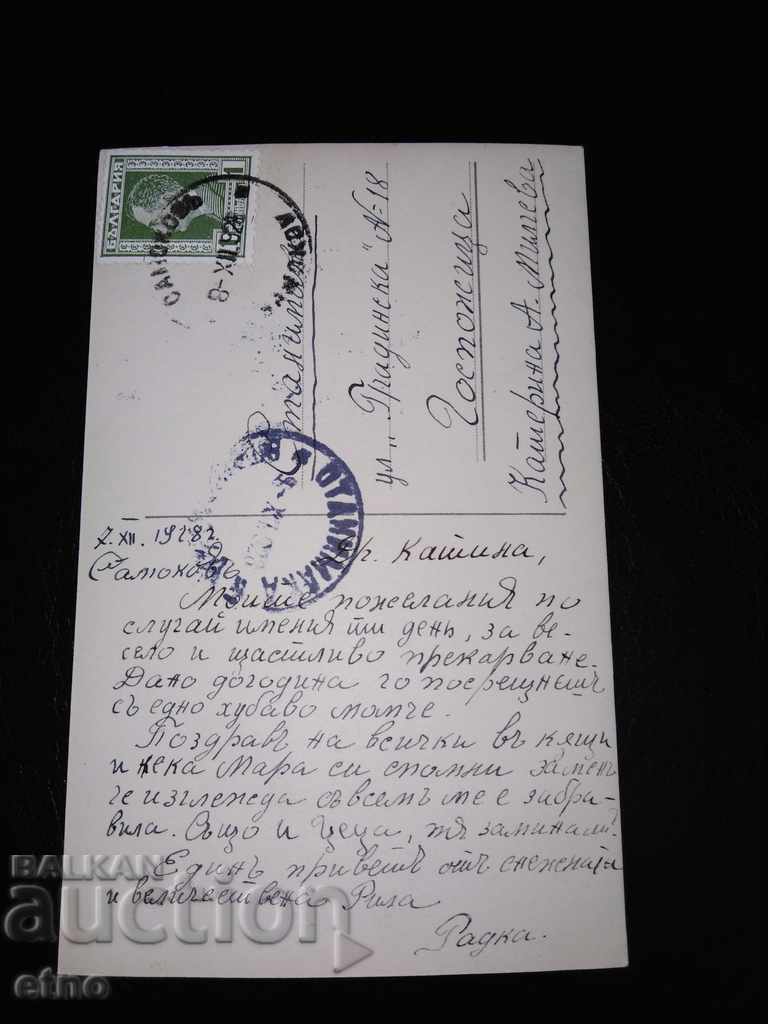 БЪЛГАРИЯ
1 1
САМОКОВЪ
8-XII.928
Станимака
ул. „Градинска" №18
Госпожица
Катерина А. Милчева
СТАНИМАКА
7.XII. 1928 г.
Самоковъ
Др. Катина,
Моите пожелания по
случай имения ти день, за ве-
село и щастливо прекарване.
Дано догодина го посрещнешъ
съ едно хубаво момче.
Поздравъ на всички въ кѫщи
и нека Мара си спомни за менъ
че изглежда съвсемъ ме е забра-
вила. Също и Цеца, тя замина ли?
Единъ приветъ отъ снежната
и величествена Рила
Радка.
BALKAN
auction
etno